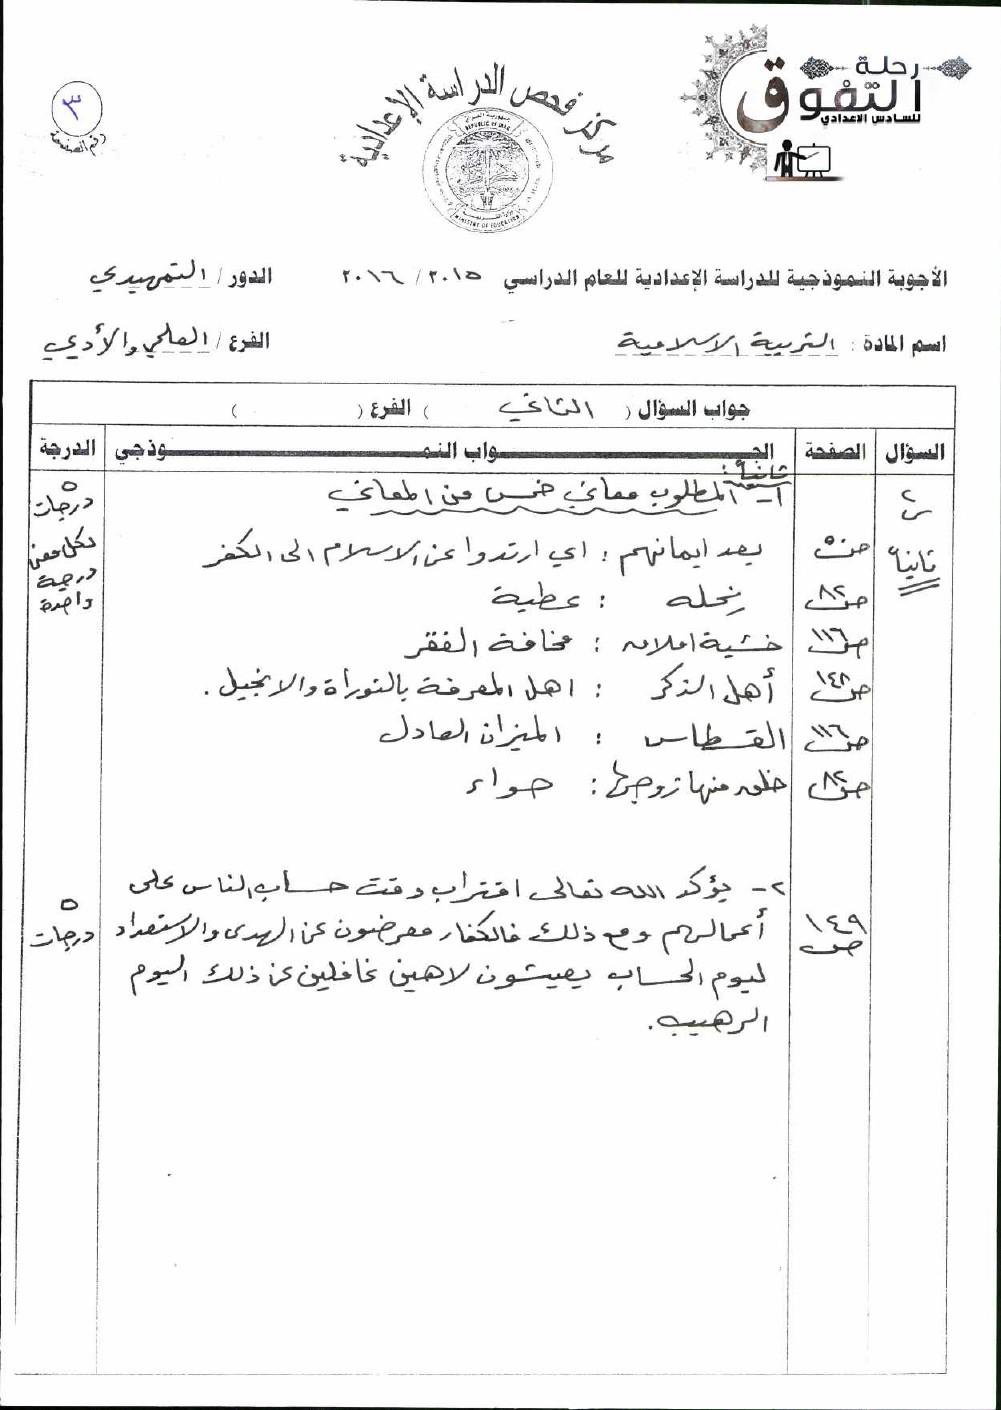 رحلة
التفوق
للسادس الاعدادي
مركز فحص الدراسة الإعدادية
REPUBLIC OF IRAQ
MINISTRY OF EDUCATION
٣
رقم الصفحة
الأجوبة النموذجية للدراسة الإعدادية للعام الدراسي ٢٠١٥ / ٢٠١٦ الدور / التمهيدي
اسم المادة : التربية الاسلامية الفرع / العلمي والأدبي
جواب السؤال ( الثاني ) الفرع ( )
السؤال الصفحة الجـــواب النمـــوذجي الدرجة
س٢ ثانياً
ثانياً:
١- المطلوب معاني خمس من المعاني ٥ درجات
لكل معنى درجة واحدة
ص٥٠ بعد ايمانهم : اي ارتدوا عن الاسلام الى الكفر
ص٨٢ نحله : عطية
ص١١٦ خشية املاق : مخافة الفقر
ص١٤٢ أهل الذكر : اهل المعرفة بالتوراة والانجيل .
ص١١٦ القسطاس : الميزان العادل
ص٨٢ خلق منها زوجها : حواء
٢- يؤكد الله تعالى اقتراب وقت حساب الناس على
ص١٤٩ أعمالهم ومع ذلك فالكفار معرضون عن الهدى والاستعداد ٥ درجات
ليوم الحساب يعيشون لاهين غافلين عن ذلك اليوم
الرهيب.